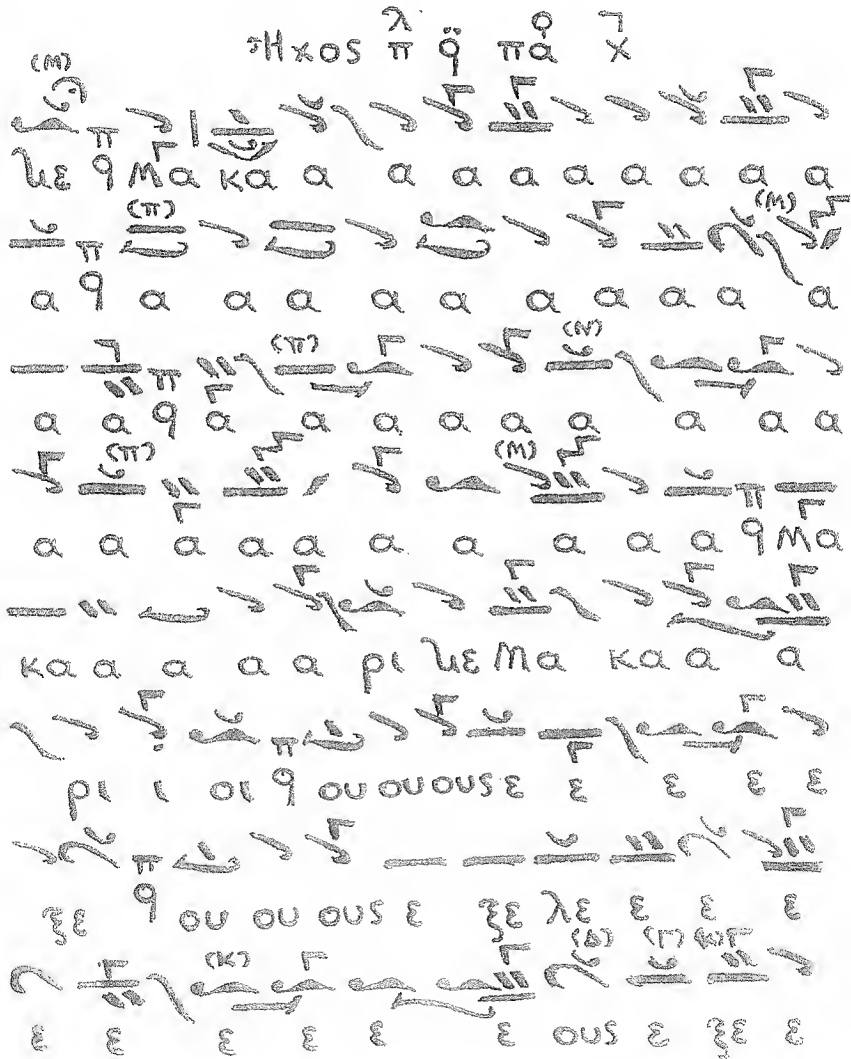 Ἦχος λ π q πα χ
(Μ)
π
Νε q Μα κα α α α α α α α α α
(π) (Μ)
π
α q α α α α α α α α α α
(π) (Ν)
π
α α q α α α α α α α α α
(π) (Μ)
π
α α α α α α α α α α q Μα
κα α α α α ρι Νε Μα κα α α
π
ρι ι οι q ου ου ους ε ε ε ε ε
π
ξε q ου ου ους ε ξε λε ε ε ε
(Κ) (Δ) (Γ) (Κ)
ε ε ε ε ε ε ους ε ξε ε